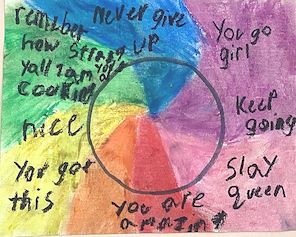 remember
how strong
yall I am
cooking
Never give
UP
You go
girl
Keep
going
slay
queen
you are
amazing
You got
this
nice